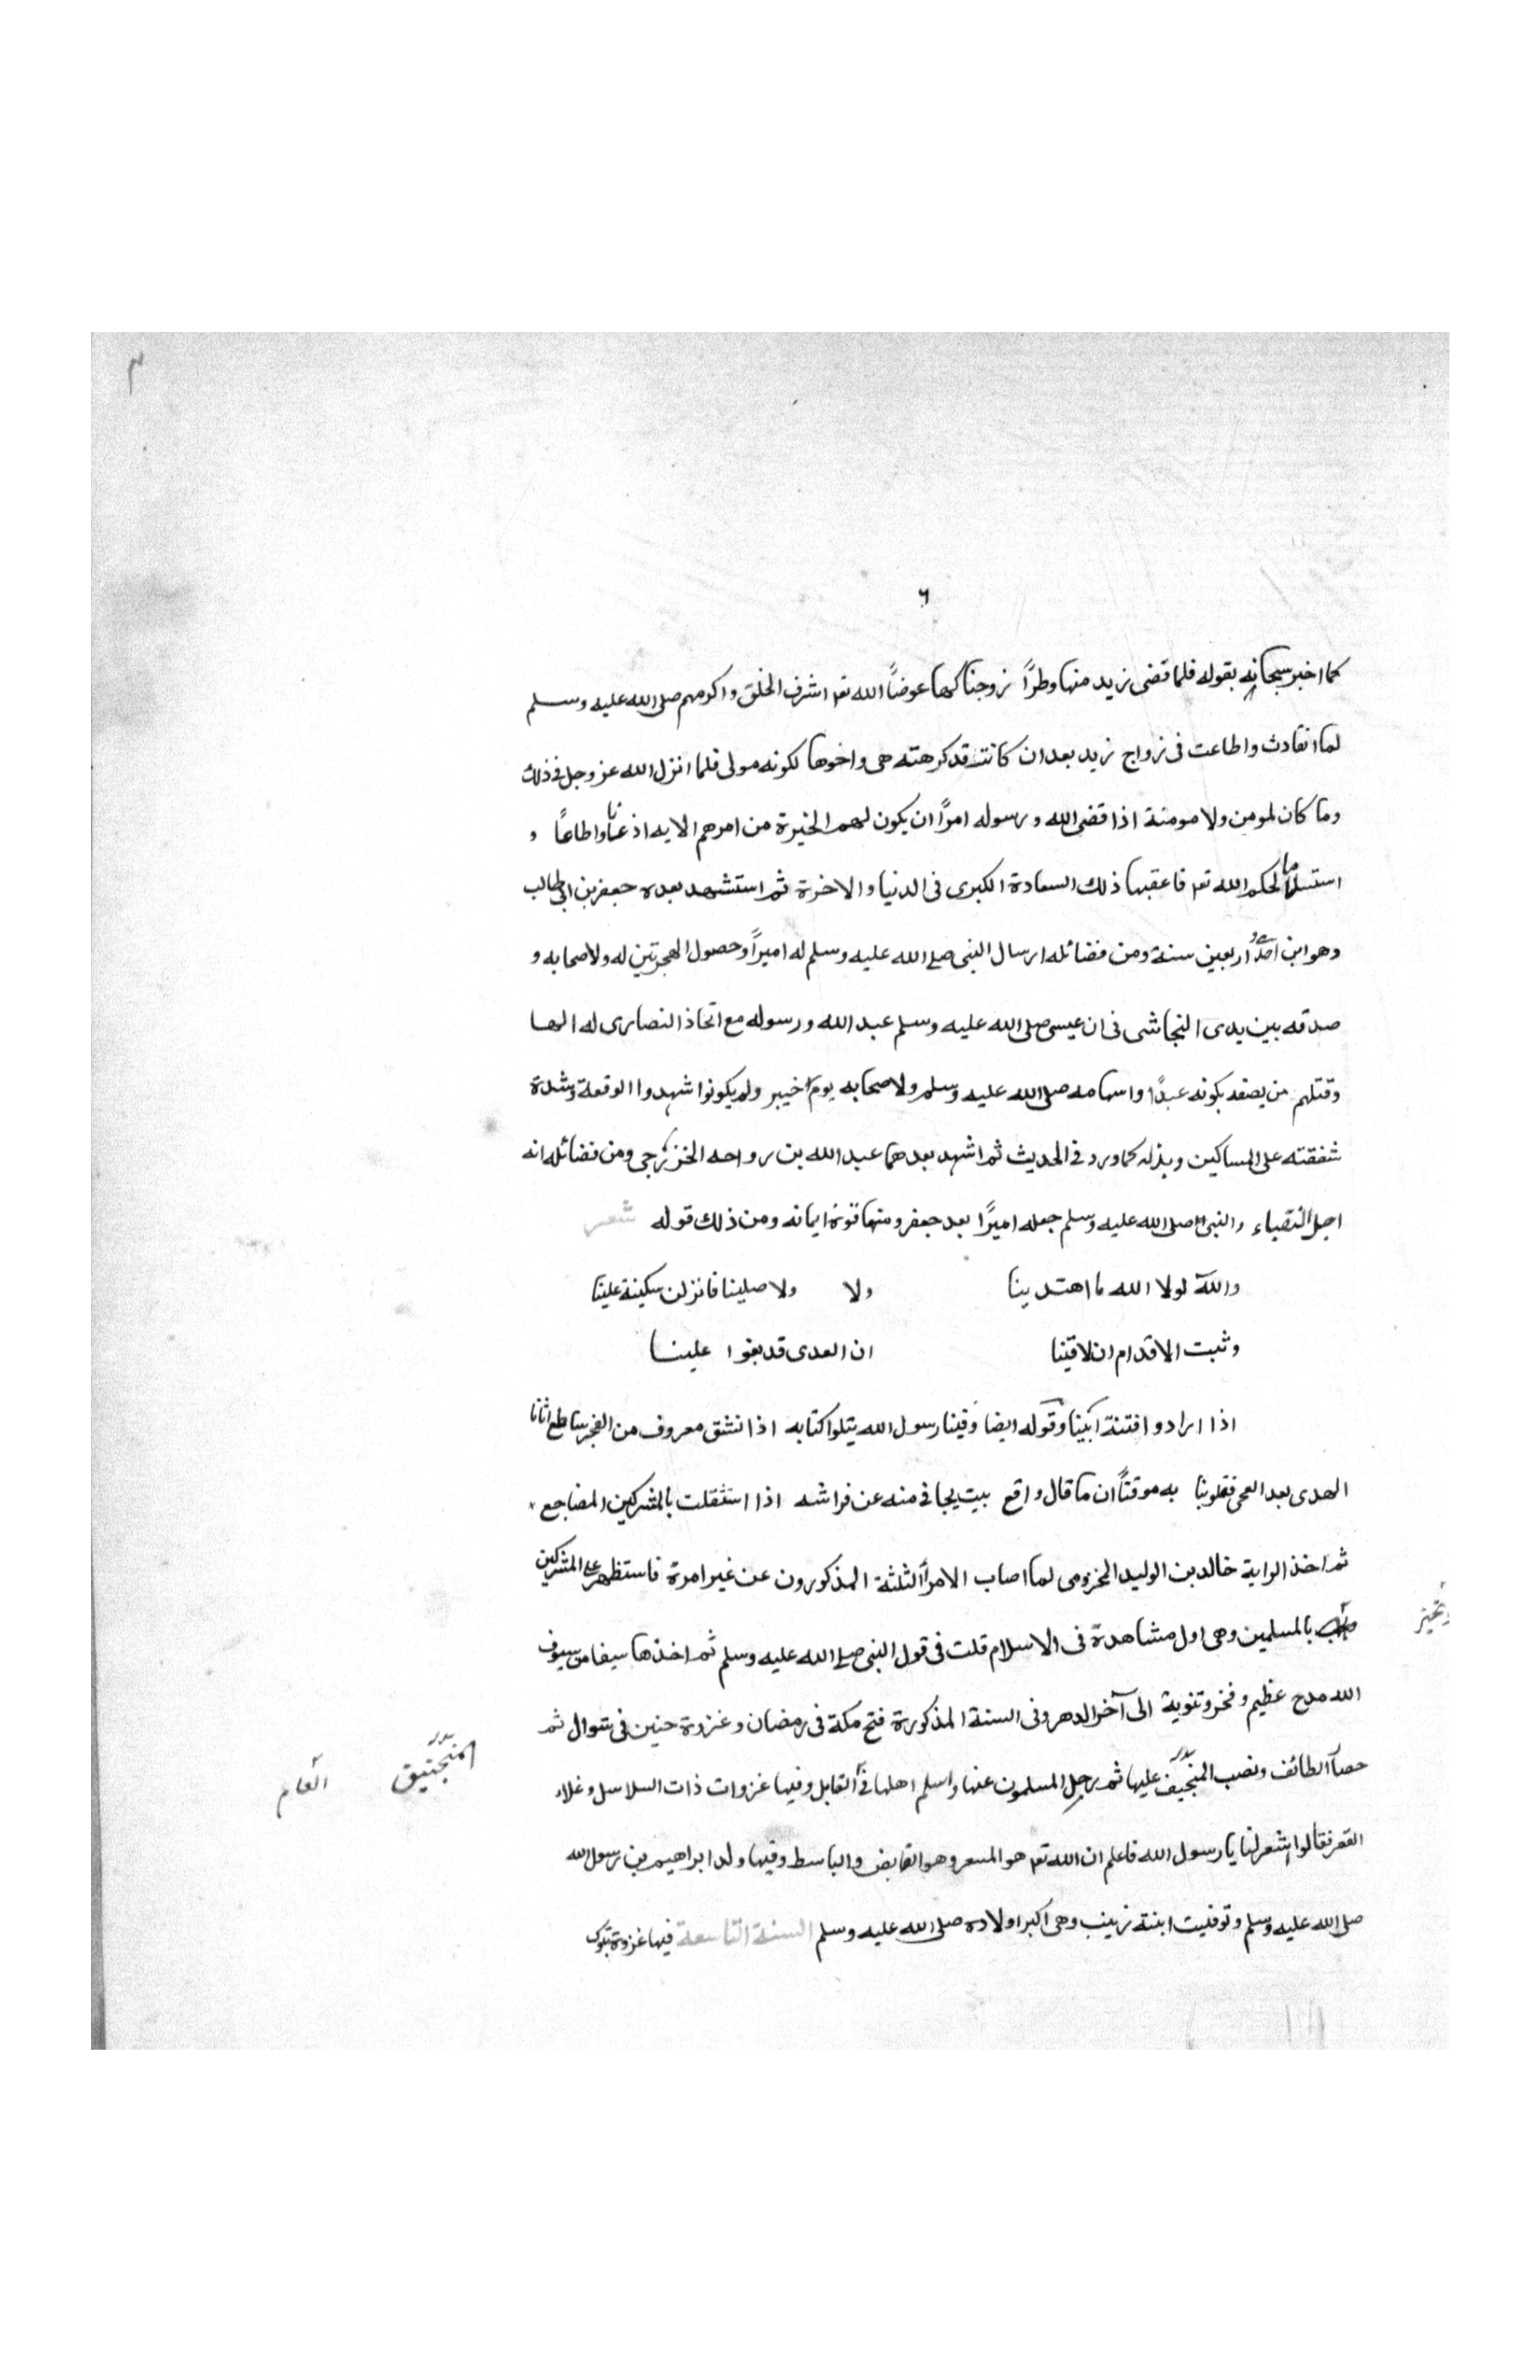 ٦
كما اخبر سبحانه بقوله فلما قضى زيد منها وطرًا زوجناكها عوضاً الله تعـ اشرف الخلق واكرمهم صلى الله عليه وسلم
لما انقادت واطاعت فى زواج زيد بعد ان كانت قد كرهته هى واخوها لكونه مولى فلما انزل الله عز وجل فى ذلك
وما كان لمومن ولا مومنة اذا قضى الله ورسوله امرًا ان يكون لهم الخيرة من امرهم الايه اذعنا واطاعا و
استسلما لحكم الله تعـ فاعقبها ذلك السعادة الكبرى فى الدنيا والاخرة ثم استشهد بعده جعفر بن ابى طالب
وهو ابن احدى و اربعين سنة ومن فضائله ارسال النبى صلى الله عليه وسلم له اميراً وحصول الهجرتين له ولاصحابه و
صدقه بين يدى النجاشى فى ان عيسى صلى الله عليه وسلم عبد الله ورسوله مع اتخاذ النصارى له الها
وقتلهم من يصفه بكونه عبدًا واسهامه صلى الله عليه وسلم ولاصحابه يوم خيبر ولم يكونوا شهدوا الوقعة وشدة
شفقته على المساكين وبذله كما ورد فى الحديث ثم اشهد بعدهما عبد الله بن رواحه الخزرجى ومن فضائله انه
اجل النقباء والنبى صلى الله عليه وسلم جعله اميرًا بعد جعفر ومنها قوة ايمانه ومن ذلك قوله شعر
والله لولا الله ما اهتدينا ولا ولا صلينا فانزلن سكينة علينا
وثبت الاقدام ان لاقينا ان العدى قد بغوا علينا
اذا ارادوا فتنة ابينا وقوله ايضا وفينا رسول الله يتلوا كتابه اذا نشق معروف من الفجر ساطع اتانا
الهدى بعد العمى فقلوبنا به موقناً ان ما قال واقع بيت يجافى منه عن فراشه اذا استثقلت بالمشركين المضاجع
ثم اخذ الراية خالد بن الوليد المخزومى لما اصاب الامراً الثلثة المذكورون عن غير امرة فاستظهر على المشركين
بالمسلمين وهى اول مشاهدة فى الاسلام قلت فى قول النبى صلى الله عليه وسلم ثم اخذها سيفا من سيوف
الله مدح عظيم وفخر وتنوية الى آخر الدهر وفى السنة المذكورة فتح مكة فى رمضان وغزوة حنين فى شوال ثم
حصار الطائف ونصب المنجيف عليها ثم رحل المسلمون عنها واسلم اهلها فى القابل وفيها غزوات ذات السلاسل وغلاء
فقالوا سعر لنا يا رسول الله فاعلم ان الله تعـ هو المسعر وهو القابض والباسط وفيها ولد ابراهيم بن رسول الله
صلى الله عليه وسلم وتوفيت ابنته زينب وهى اكبر اولاده صلى الله عليه وسلم السنة التاسعة فيها غزوة تبوك
المنجنيق
العام